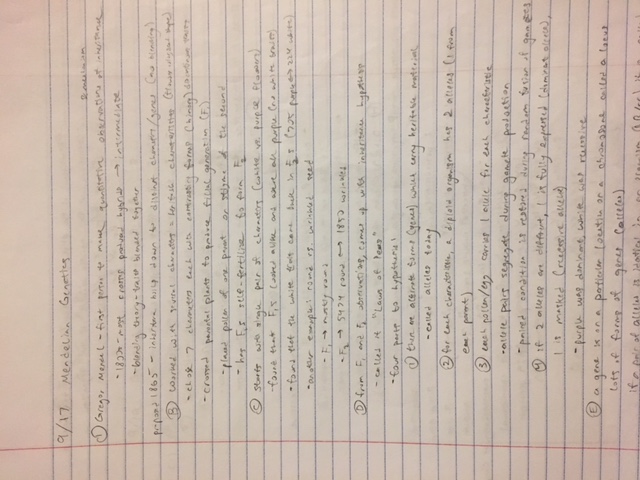 9/17 Mendelian Genetics
& mechanism
① Gregor Mendel - first person to make quantitative observations of inheritance
- 1800s - most crosses produced hybrids → intermediate
- blending theory - traits blended together
proposed 1865 - inheritance boils down to distinct characters/genes (no blending)
Ⓑ Worked with several characters = heritable characteristics (flower color, seed shape)
- chose 7 characters each with contrasting forms (binary) dominant traits
- crossed parental plants to produce filial generation (F₁)
- placed pollen of one parent on stigma of the second
- has F₁s self-fertilize to form F₂
Ⓒ Starts with single pair of characters (white vs purple flowers)
- found that F₁s looked alike and were all purple (no white traits)
- found that the white trait came back in F₂s (705 purple ↔ 224 white)
- another example: round vs. wrinkled seed
- F₁ → mostly round
- F₂ → 5474 round ↔ 1850 wrinkled
Ⓓ from F₁ and F₂ observations, comes up with inheritance hypothesis
- called it "Laws of Peas"
- four parts to hypothesis:
① there are alternate forms (genes) which carry heritable material
- called alleles today
② for each characteristic, a diploid organism has 2 alleles (1 from
each parent)
③ each pollen/egg carries 1 allele for each characteristic
- allele pairs segregate during gamete production
- paired condition is restored during random fusion of gametes
④ if 2 alleles are different, 1 is fully expressed (dominant allele),
1 is masked (recessive allele)
- purple was dominant, white was recessive
Ⓔ a gene is on a particular location on a chromosome called a locus
lots of forms of genes (alleles)
if a pair of alleles is identical in an organism